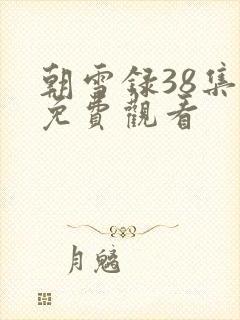 朝雪録38集
免費觀看
月魑